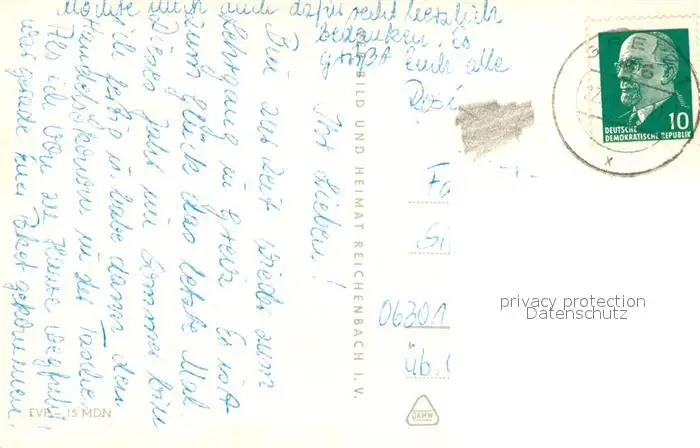 Ihr Lieben!
Bin zur Zeit wieder zum
Lehrgang in Greiz. Es ist
zum Glück das letzte Mal.
Dieses Jahr im Sommer bin
ich fertig u. habe dann den
in der Tasche.
Als ich von zu Hause wegfuhr,
war gerade Euer Paket gekommen.
Möchte mich auch dafür recht herzlich
bedanken. Es
grüßt Euch alle
Rosé
BILD UND HEIMAT REICHENBACH I. V.
EVP 15 MDN
GREIZ
10
DEUTSCHE
DEMOKRATISCHE REPUBLIK
06301
üb.
DAMW
privacy protection
Datenschutz